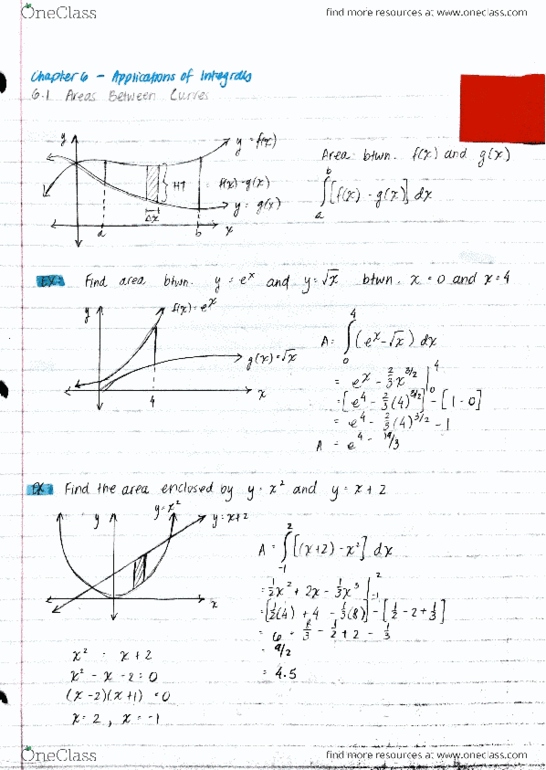 OneClass
find more resources at www.oneclass.com
Chapter 6 - Applications of Integrals
6.1 Areas Between Curves
y
y = f(x)
HT = f(x) - g(x)
y = g(x)
Δx
a b x
Area btwn. f(x) and g(x)
∫_a^b [f(x) - g(x)] dx
EX: Find area btwn. y = e^x and y = √x btwn. x = 0 and x = 4
y
f(x) = e^x
g(x) = √x
4
x
A = ∫_0^4 (e^x - √x) dx
= e^x - 2/3 x^3/2 |_0^4
= [e^4 - 2/3 (4)^3/2] - [1 - 0]
= e^4 - 2/3 (4)^3/2 - 1
A = e^4 - 19/3
EX: Find the area enclosed by y = x² and y = x + 2
y
y = x²
y = x + 2
x
A = ∫_-1^2 [(x+2) - x²] dx
= 1/2 x² + 2x - 1/3 x³ |_-1^2
= [1/2 (4) + 4 - 1/3 (8)] - [1/2 - 2 + 1/3]
= 6 - 8/3 - 1/2 + 2 - 1/3
= 9/2
= 4.5
x² = x + 2
x² - x - 2 = 0
(x - 2)(x + 1) = 0
x = 2, x = -1
OneClass
find more resources at www.oneclass.com